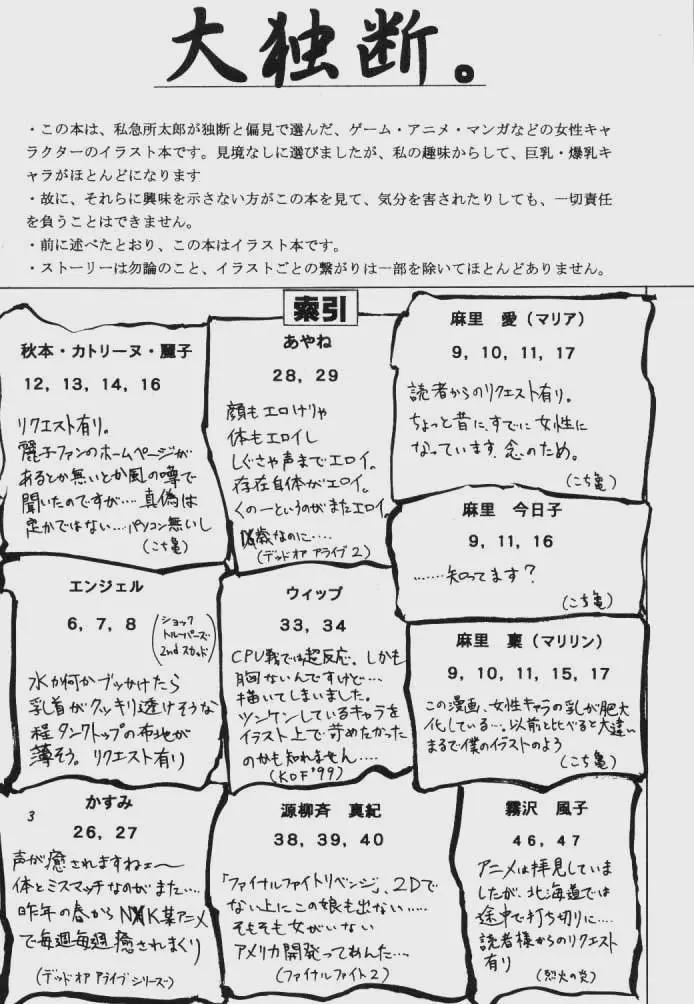 大独断。
・この本は、私急所太郎が独断と偏見で選んだ、ゲーム・アニメ・マンガなどの女性キャ
ラクターのイラスト本です。見境なしに選びましたが、私の趣味からして、巨乳・爆乳キ
ャラがほとんどになります
・故に、それらに興味を示さない方がこの本を見て、気分を害されたりしても、一切責任
を負うことはできません。
・前に述べたとおり、この本はイラスト本です。
・ストーリーは勿論のこと、イラストごとの繋がりは一部を除いてほとんどありません。
索引
秋本・カトリーヌ・麗子
12, 13, 14, 16
リクエスト有り。
麗子ファンのホームページが
あるとか無いとか風の噂で
聞いたのですが…. 真偽は
定かではない…. パソコン無いし
(こち亀)
あやね
28, 29
(デッド オア アライブ 2)
麻里 愛(マリア)
9, 10, 11, 17
読者からのリクエスト有り。
ちょっと昔に、すでに女性に
なっています。念のため。
(こち亀)
麻里 今日子
9, 11, 16
……. 知ってます?
(こち亀)
エンジェル
6, 7, 8
(ショック
トルーパーズ
2nd スカッド)
水か何かブッかけたら
乳首がクッキリ透けそうな
程タンクトップの布地が
薄そう。リクエスト有り
ウィップ
33, 34
CPU戦では超反応。しかも
胸ないんですけど…
描いてしまいました。
ツンケンしているキャラを
イラスト上で苛めたかった
のかも知れません….
(KOF'99)
麻里 稟(マリリン)
9, 10, 11, 15, 17
この漫画、女性キャラの乳が肥大
化している…。以前と比べると大違い
まるで僕のイラストのよう
(こち亀)
3
かすみ
26, 27
声が癒されますねェ〜
体とミスマッチなのがまた….
昨年の春からNXK某アニメ
で毎週毎週癒されまくり
(デッド オア アライブ シリーズ)
源柳斉 真紀
38, 39, 40
「ファイナルファイトリベンジ」、2Dで
ない上にこの娘も出ない…..
そもそも女がいない
アメリカ開発ってあんた…。
(ファイナルファイト2)
霧沢 風子
46, 47
アニメは拝見していま
したが、北海道では
途中で打ち切りに….
読者様からのリクエスト
有り
(烈火の炎)